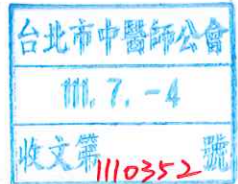 台北市中醫師公會
111. 7. -4
收文第1110352號